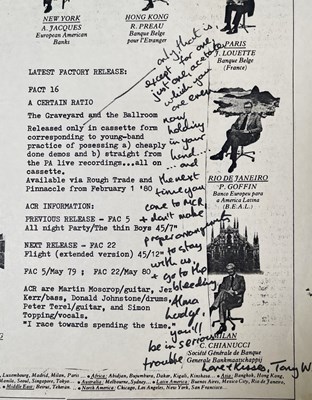 NEW YORK
A. JACQUES
European American
Banks
HONG KONG
R. PREAU
Banque Belge
pour l'Etranger
PARIS
J. LOUETTE
Banque Belge
(France)
LATEST FACTORY RELEASE:
FACT 16
A CERTAIN RATIO
The Graveyard and the Ballroom
Released only in cassette form
corresponding to young-band
practice of posessing a) cheaply
done demos and b) straight from
the PA live recordings...all on
cassette.
Available via Rough Trade and
Pinnaccle from February 1 '80
ACR INFORMATION:
PREVIOUS RELEASE - FAC 5
All night Party/The thin Boys 45/7"
NEXT RELEASE - FAC 22
Flight (extended version) 45/12"
FAC 5/May 79 ; FAC 22/May 80
ACR are Martin Moscrop/guitar, Jez
Kerr/bass, Donald Johnstone/drums,
Peter Terel/guitar, and Simon
Topping/vocals.
"I race towards spending the time."
only, that is,
except for one,
just one, acetate
which you
are even
now
holding
in your
hand...
... and
the next
time you
come to MCR,
+ don't make
proper arrangements
to stay
with us,
+ go to the
bleeding
Alma
Lodge,
you'll
be in serious
trouble
Love + kisses, Tony W
RIO DE JANEIRO
P. GOFFIN
Banco Europeu para
a America Latina
(B.E.A.L.)
MILAN
C. CHIANUCCI
Société Générale de Banque
Generale Bankmaatschappij
Luxembourg, Madrid, Milan, Paris ... • Africa: Abidjan, Bujumbura, Dakar, Kigali, Kinshasa ... • Asia: Bangkok, Hong Kong,
Manila, Seoul, Singapore, Tokyo ... • Australia: Melbourne, Sydney... • Latin America: Buenos Aires, Mexico City, Rio de Janeiro,
• Middle East: Beirut, Teheran ... • North America: Chicago, Los Angeles, New York, San Francisco...